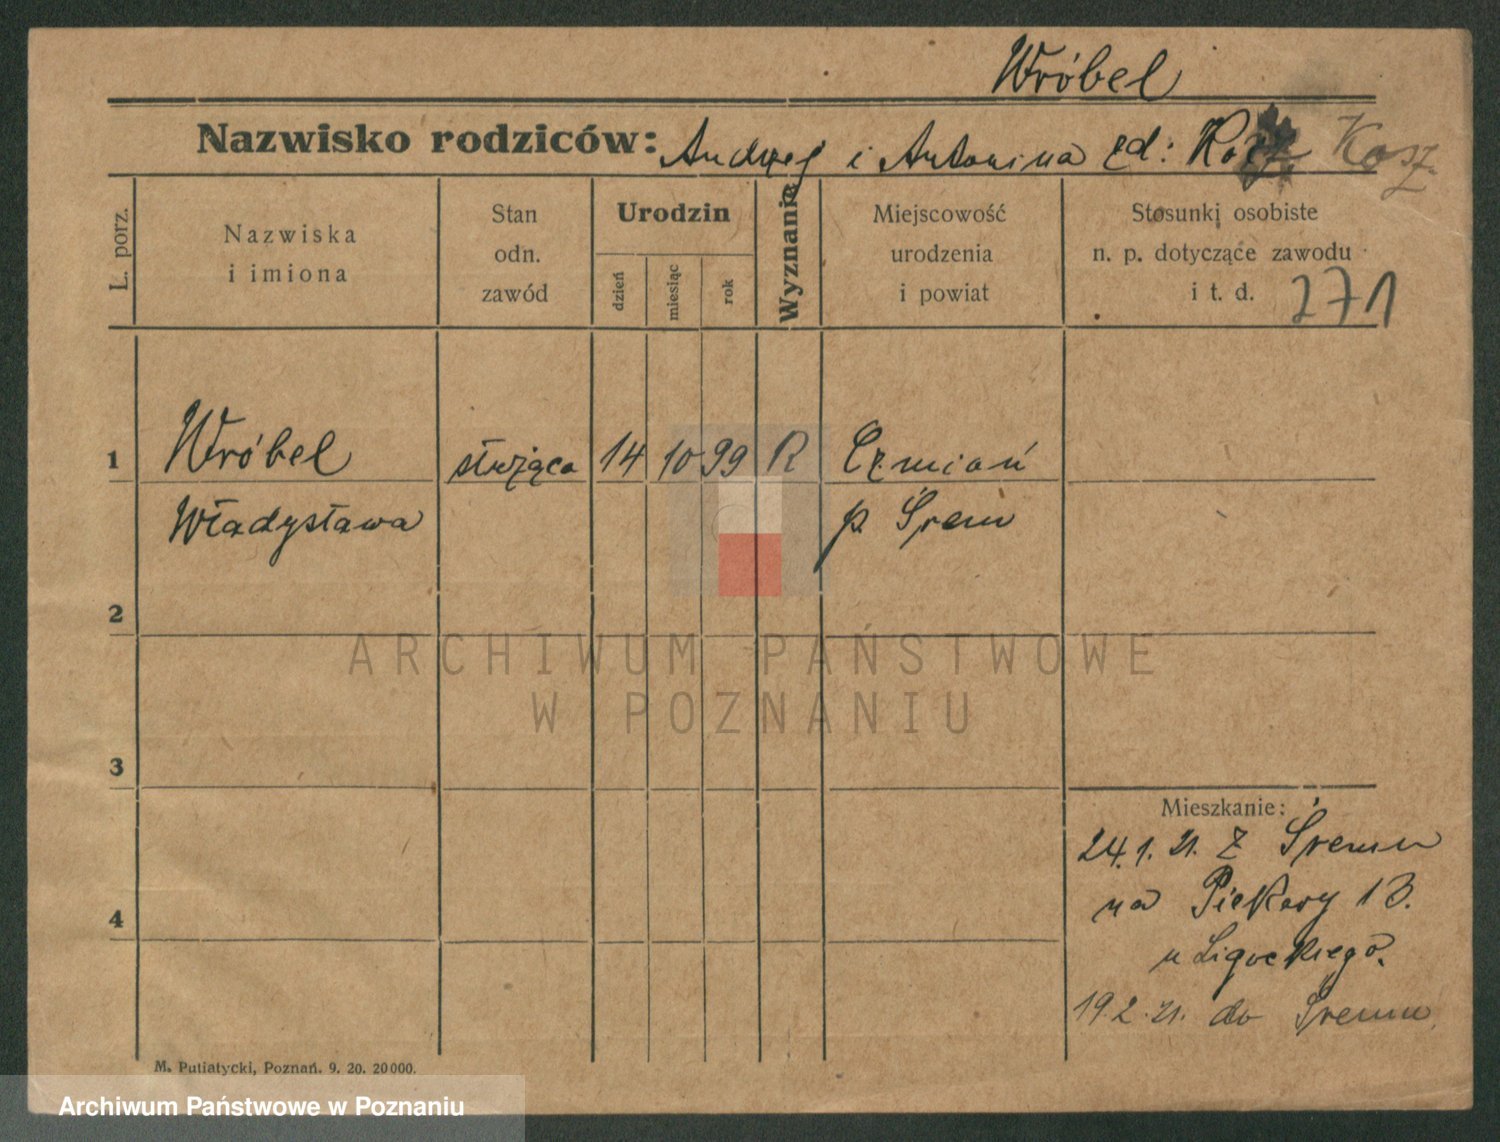 Wróbel
Nazwisko rodziców: Andrzej i Antonina zd: Kosz
L. porz.
Nazwiska
i imiona
Stan
odn.
zawód
Urodzin
dzień
miesiąc
rok
Wyznanie
Miejscowość
urodzenia
i powiat
Stosunki osobiste
n. p. dotyczące zawodu
i t. d. 271
1 Wróbel służąca 14 10 99 R Czmiań
Władysława p. Śrem
2
3
4
Mieszkanie:
24.1.21. z Śremu
na Piekary 13.
u Ligockiego.
19.2.21. do Śremu
M. Putiatycki, Poznań. 9. 20. 20000.
ARCHIWUM PAŃSTWOWE
W POZNANIU
Archiwum Państwowe w Poznaniu